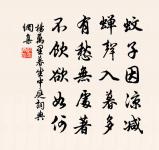 蚊子因涼減
蟬聲入暮多
有愁無處著
不飲欲如何
楊萬里暮坐中庭詞典
網